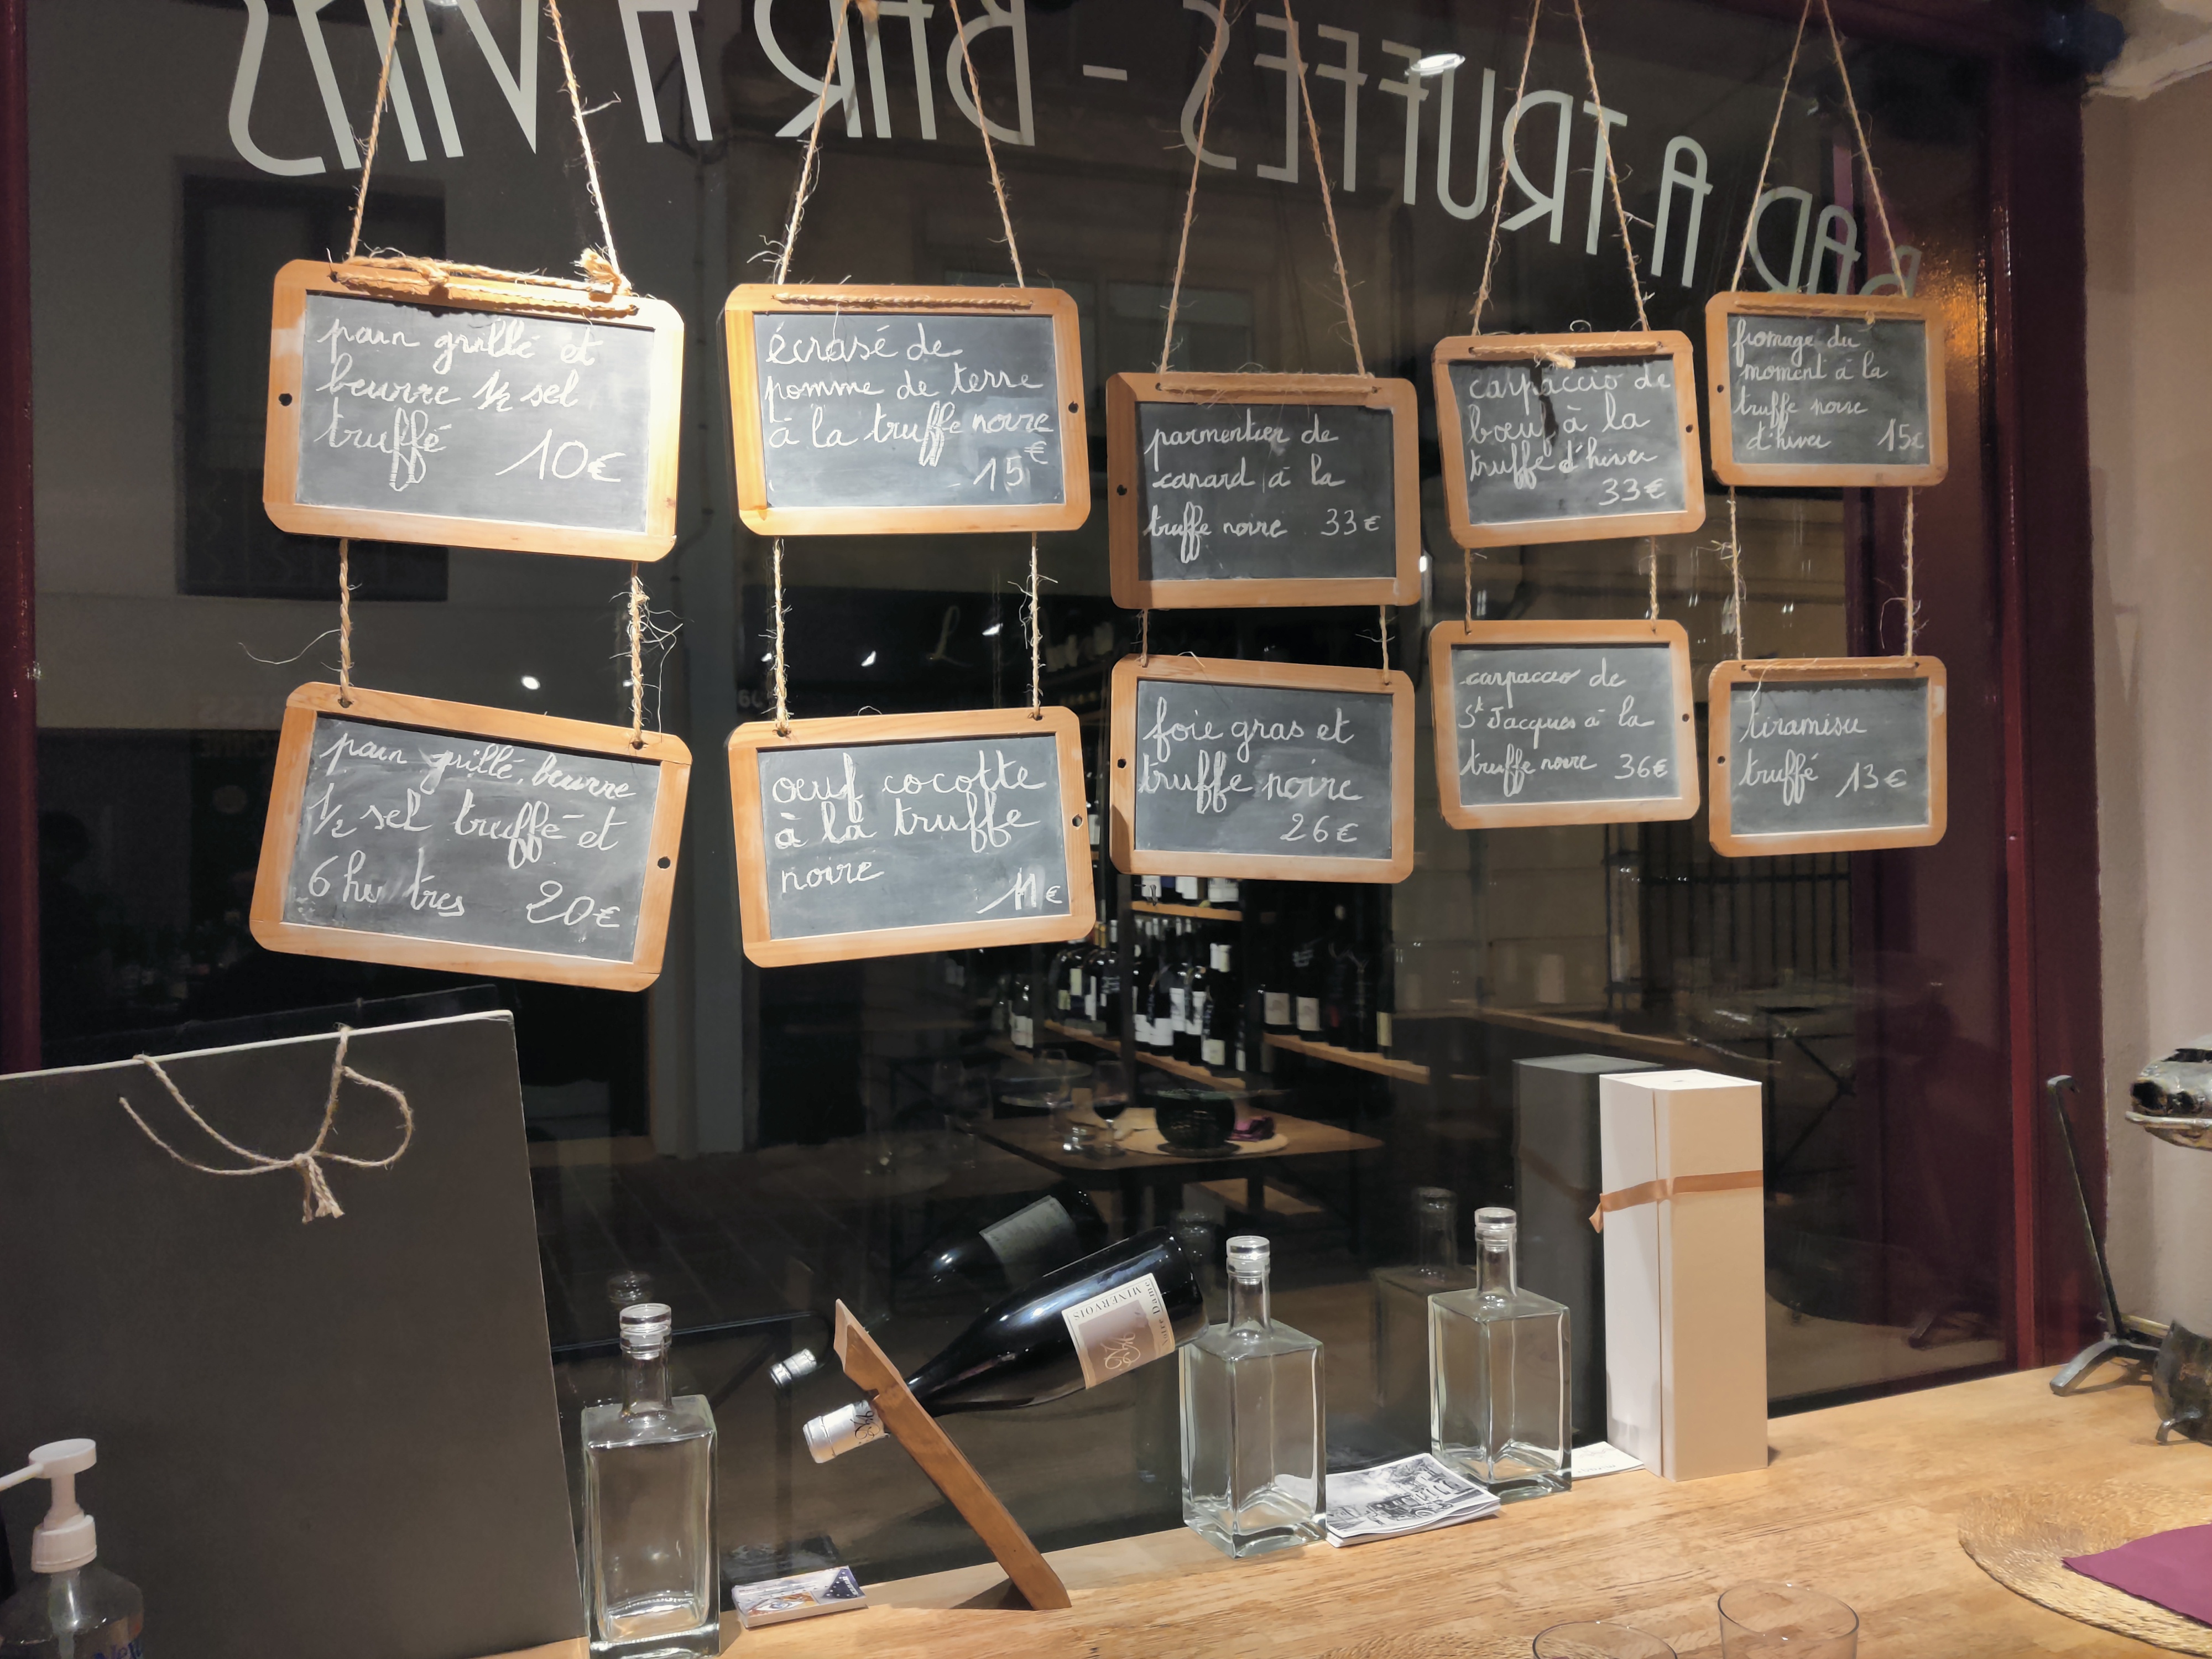 BAR A TRUFFES - BAR A VINS
pain grillé et
beurre 1/2 sel
truffé
10€
écrasé de
pomme de terre
à la truffe noire
15€
parmentier de
canard à la
truffe noire 33€
carpaccio de
bœuf à la
truffe d'hiver
33€
fromage du
moment à la
truffe noire
d'hiver 15€
pain grillé, beurre
1/2 sel truffé et
6 hu tres 20€
oeuf cocotte
à la truffe
noire
11€
foie gras et
truffe noire
26€
carpaccio de
St Jacques à la
truffe noire 36€
tiramisu
truffé 13€
MINERVOIS